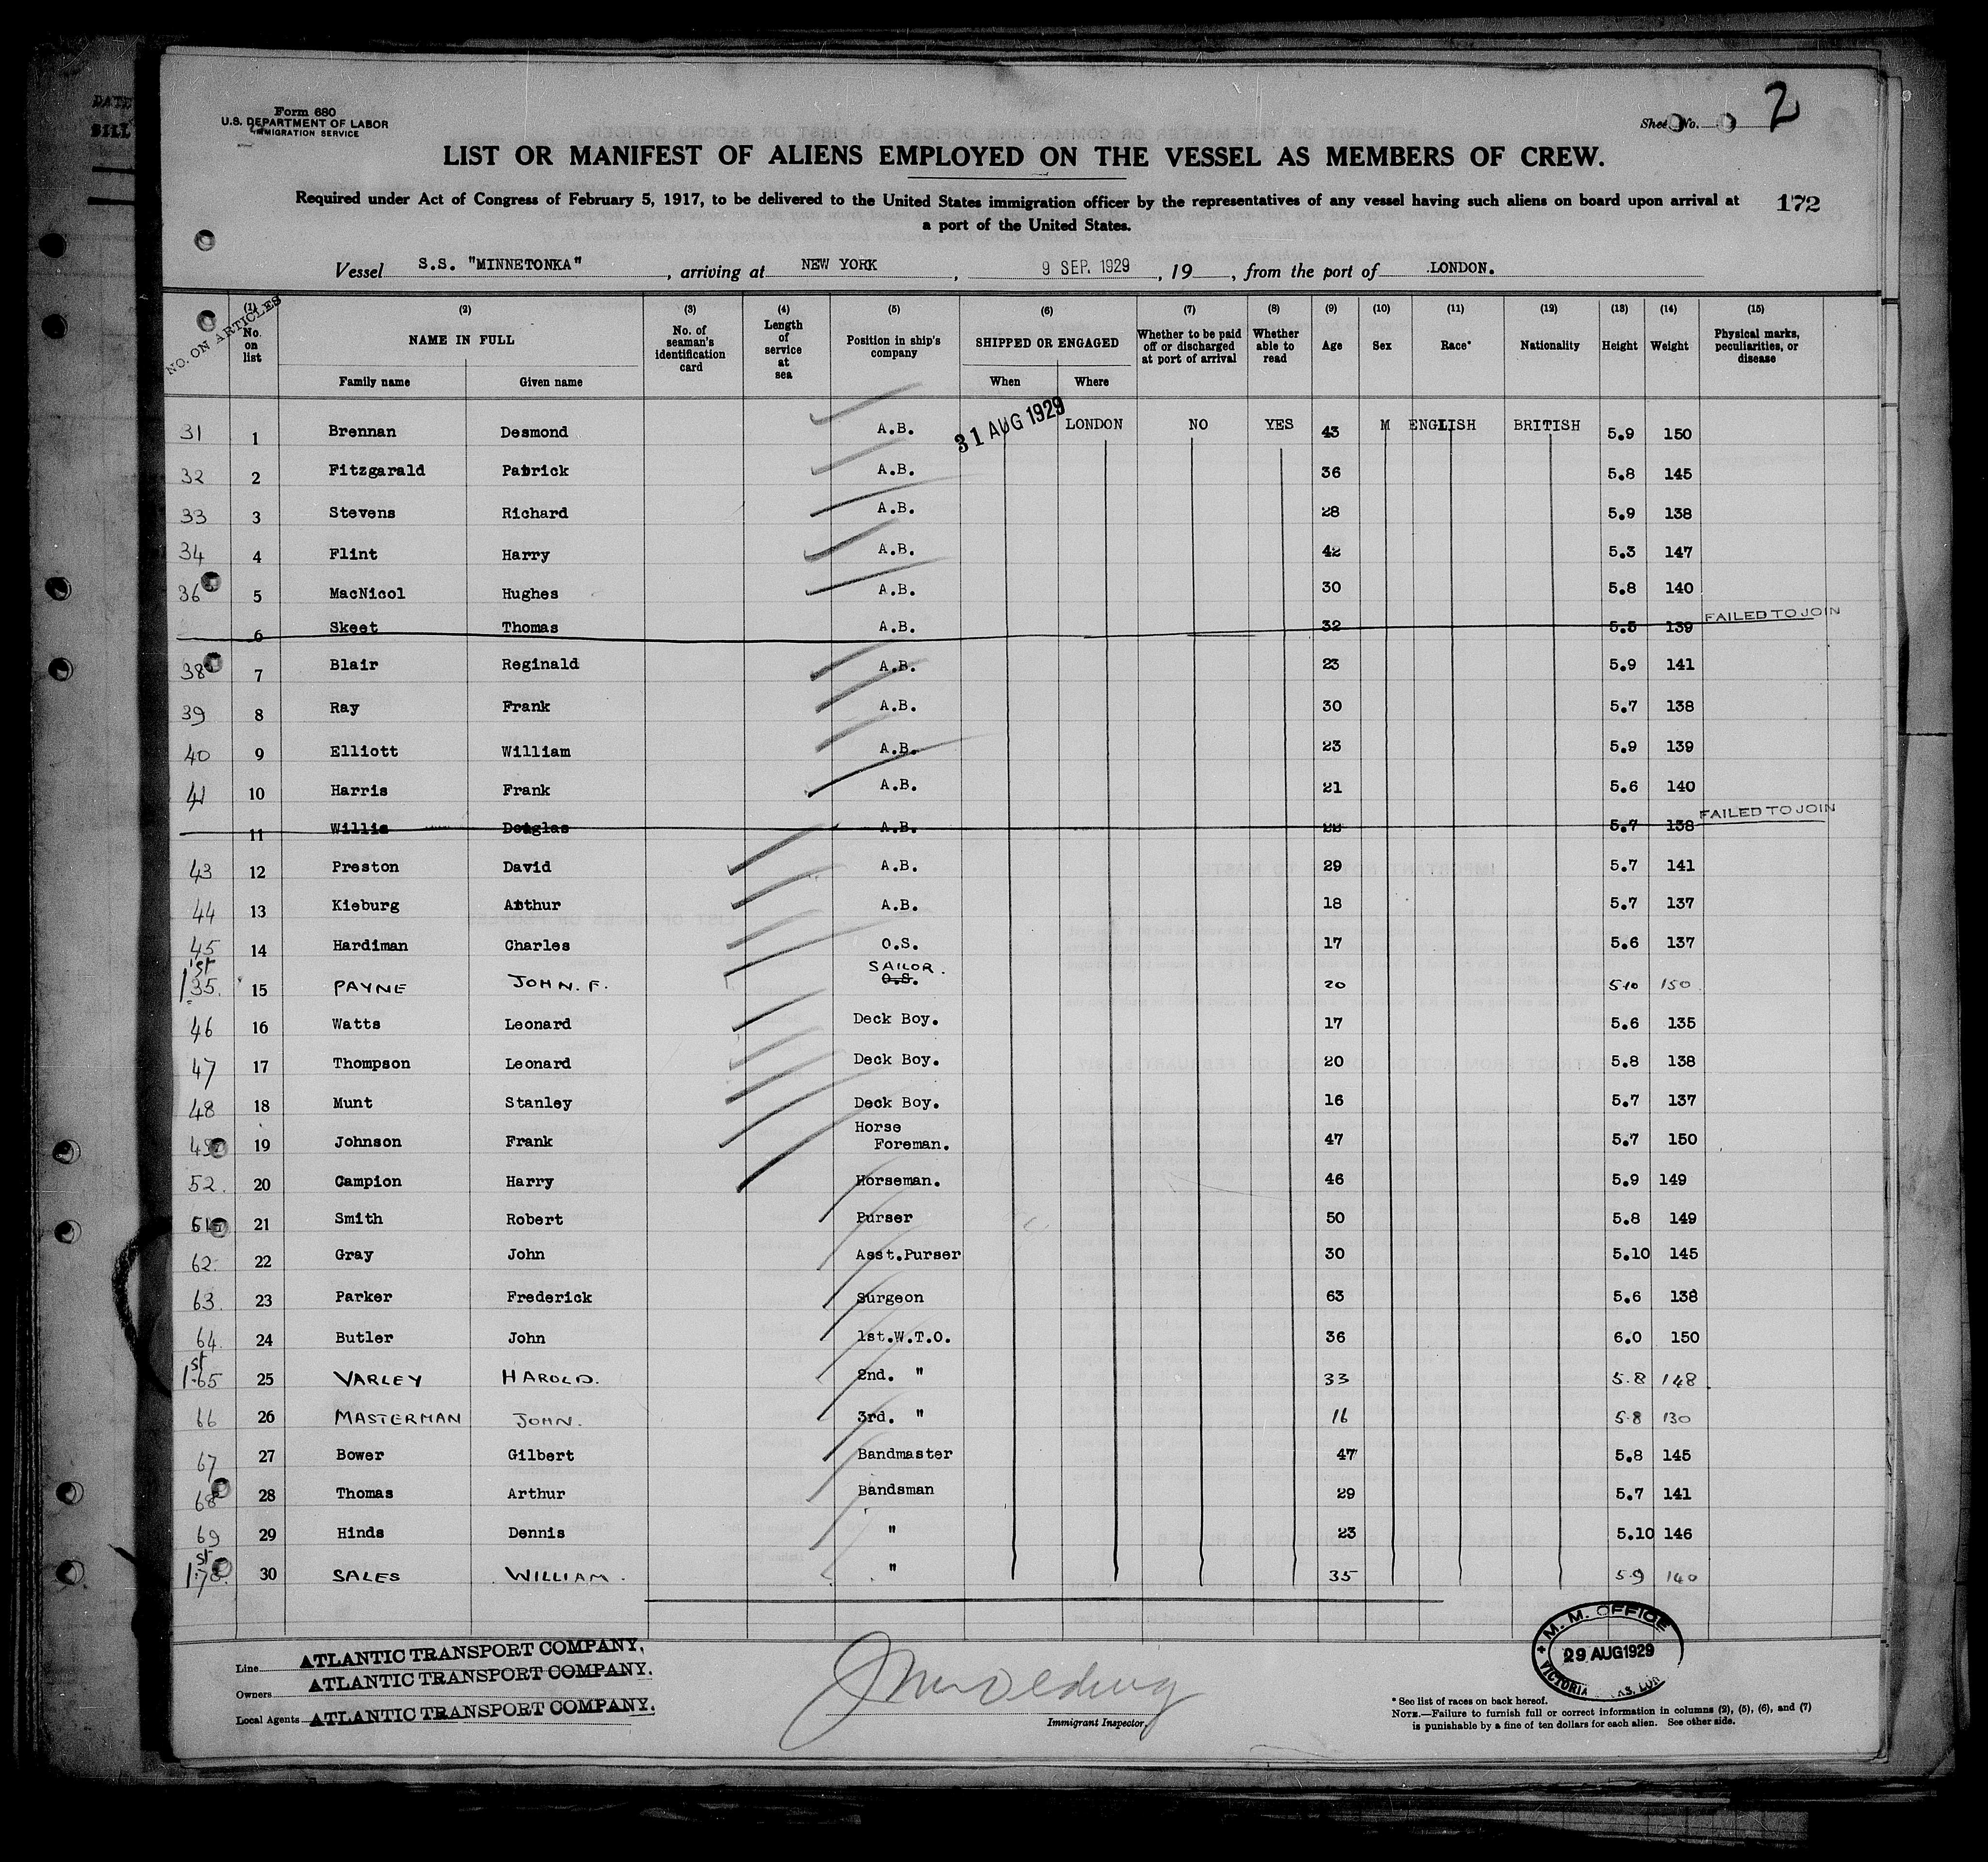 DATE
BILL
Form 680
U.S. DEPARTMENT OF LABOR
IMMIGRATION SERVICE
Sheet No. 2
LIST OR MANIFEST OF ALIENS EMPLOYED ON THE VESSEL AS MEMBERS OF CREW.
Required under Act of Congress of February 5, 1917, to be delivered to the United States immigration officer by the representatives of any vessel having such aliens on board upon arrival at
a port of the United States.
172
Vessel S.S. "MINNETONKA", arriving at NEW YORK, 9 SEP. 1929, 19, from the port of LONDON.
NO. ON ARTICLES (1) No. on list (2) NAME IN FULL Family name Given name (3) No. of seaman's identification card (4) Length of service at sea (5) Position in ship's company (6) SHIPPED OR ENGAGED When Where (7) Whether to be paid off or discharged at port of arrival (8) Whether able to read (9) Age (10) Sex (11) Race* (12) Nationality (13) Height (14) Weight (15) Physical marks, peculiarities, or disease
31 1 Brennan Desmond A.B. 31 AUG 1929 LONDON NO YES 43 M ENGLISH BRITISH 5.9 150
32 2 Fitzgarald Patrick A.B. 36 5.8 145
33 3 Stevens Richard A.B. 28 5.9 138
34 4 Flint Harry A.B. 42 5.3 147
36 5 MacNicol Hughes A.B. 30 5.8 140
6 Skeet Thomas A.B. 32 5.5 139 FAILED TO JOIN
38 7 Blair Reginald A.B. 23 5.9 141
39 8 Ray Frank A.B. 30 5.7 138
40 9 Elliott William A.B. 23 5.9 139
41 10 Harris Frank A.B. 21 5.6 140
11 Willis Douglas A.B. 22 5.7 138 FAILED TO JOIN
43 12 Preston David A.B. 29 5.7 141
44 13 Kieburg Arthur A.B. 18 5.7 137
45 14 Hardiman Charles O.S. 17 5.6 137
1st 35. 15 PAYNE JOHN. F. SAILOR. O.S. 20 5 10 150
46 16 Watts Leonard Deck Boy. 17 5.6 135
47 17 Thompson Leonard Deck Boy. 20 5.8 138
48 18 Munt Stanley Deck Boy. 16 5.7 137
49 19 Johnson Frank Horse Foreman. 47 5.7 150
52. 20 Campion Harry Horseman. 46 5.9 149
61 21 Smith Robert Purser 50 5.8 149
62 22 Gray John Asst.Purser 30 5.10 145
63. 23 Parker Frederick Surgeon 63 5.6 138
64. 24 Butler John 1st.W.T.O. 36 6.0 150
1st 65 25 VARLEY HAROLD. 2nd. " 33 5.8 148
66 26 MASTERMAN JOHN. 3rd. " 16 5.8 130
67 27 Bower Gilbert Bandmaster 47 5.8 145
68 28 Thomas Arthur Bandsman 29 5.7 141
69 29 Hinds Dennis " 23 5.10 146
1st 70. 30 SALES WILLIAM. " 35 5.9 140
Line ATLANTIC TRANSPORT COMPANY.
Owners ATLANTIC TRANSPORT COMPANY.
Local Agents ATLANTIC TRANSPORT COMPANY.
Immigrant Inspector.
M. M. OFFICE
29 AUG 1929
VICTORIA
* See list of races on back hereof.
NOTE.—Failure to furnish full or correct information in columns (2), (5), (6), and (7)
is punishable by a fine of ten dollars for each alien. See other side.